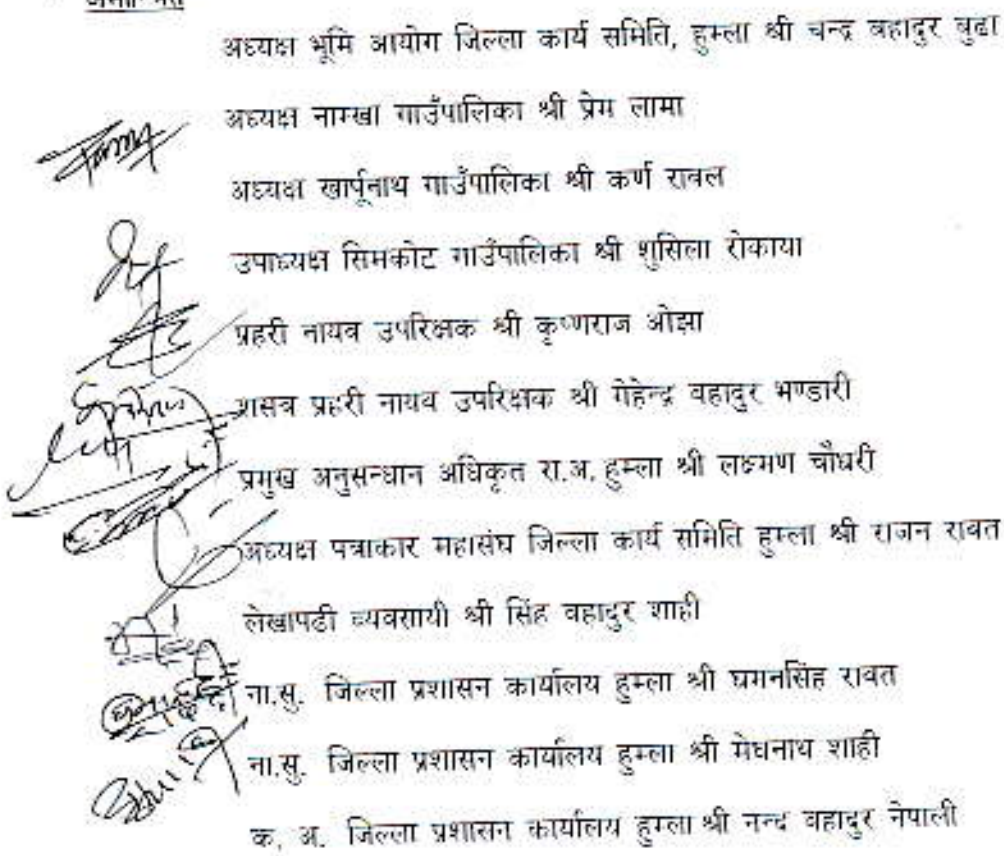 अध्यक्ष भूमि आयोग जिल्ला कार्य समिति, हुम्ला श्री चन्द्र बहादुर बुढा
अध्यक्ष नाम्खा गाउँपालिका श्री प्रेम लामा
अध्यक्ष खार्पूनाथ गाउँपालिका श्री कर्ण रावल
उपाध्यक्ष सिमकोट गाउँपालिका श्री शुसिला रोकाया
प्रहरी नायव उपरिक्षक श्री कृष्णराज ओझा
शसत्र प्रहरी नायव उपरिक्षक श्री गेहेन्द्र वहादुर भण्डारी
प्रमुख अनुसन्धान अधिकृत रा.अ. हुम्ला श्री लक्ष्मण चौधरी
अध्यक्ष पत्राकार महासंघ जिल्ला कार्य समिति हुम्ला श्री राजन रावत
लेखापढी व्यवसायी श्री सिंह वहादुर शाही
ना.सु. जिल्ला प्रशासन कार्यालय हुम्ला श्री घमनसिंह रावत
ना.सु. जिल्ला प्रशासन कार्यालय हुम्ला श्री मेघनाथ शाही
क. अ. जिल्ला प्रशासन कार्यालय हुम्ला श्री नन्द वहादुर नेपाली